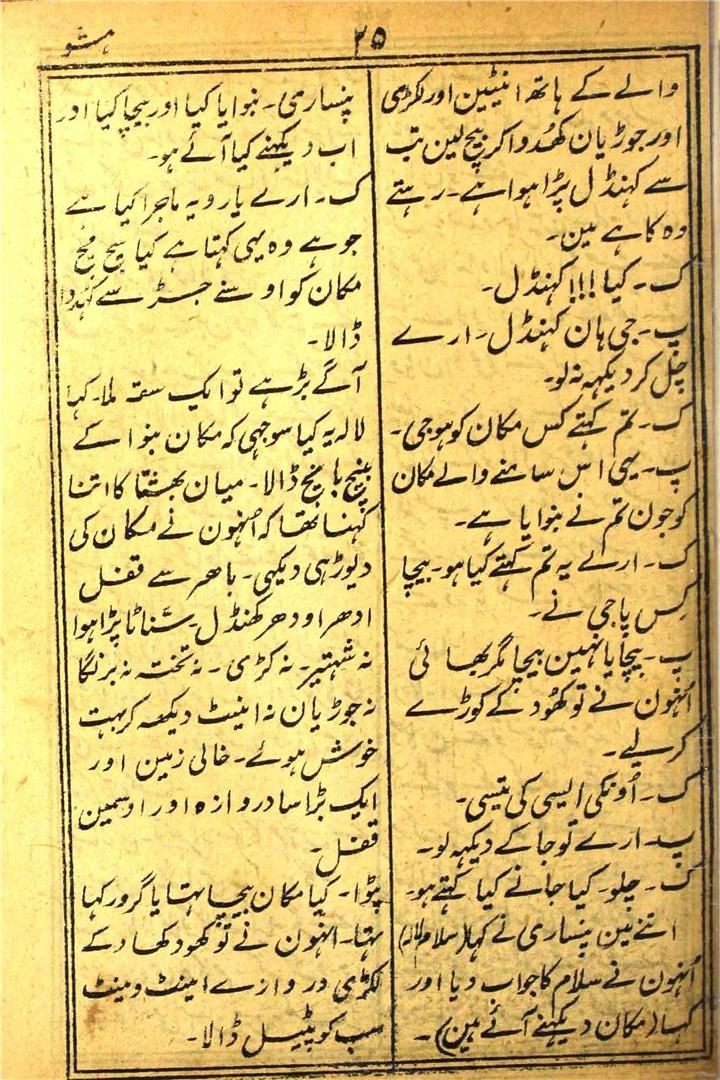 ۲۵
ہشو
والے کے ہاتھ اینٹین اور لکڑی
اور جوڑیان کھُدوا کر بیچ لین تب
سے کہنڈل پڑا ہوا ہے۔ رہتے
وہ کاہے مین۔
ک۔ کیا !!! کہنڈل۔
پ۔ جی ہان کہنڈل۔ ارے
چل کر دیکہہ نہ لو۔
ک۔ تم کہتے کس مکان کو ہو جی۔
پ۔ یہی اس سامنے والے مکان
کو جون تم نے بنوایا ہے۔
ک۔ ارے یہ تم کہتے کیا ہو۔ بیچا
کِس پاجی نے۔
پ۔ بیچا یا نہین بیچا مگر بھائی
اُنہون نے تو کھود کے کوڑے
کر لیے۔
ک۔ اُونکی ایسی کی تیسی۔
پ۔ ارے تو جا کے دیکہہ لو۔
ک۔ چلو۔ کیا جانے کیا کہتے ہو۔
اتنے مین پنساری نے کہا (سلام لالہ)
اُنہون نے سلام کا جواب دیا اور
کہا (مکان دیکہنے آئے ہین)۔
پنساری۔ بنوایا کیا اور بیچا کیا اور
اب دیکہنے کیا آئے ہو۔
ک۔ ارے یارو یہ ماجرا کیا ہے
جو ہے وہ یہی کہتا ہے کیا سچ مچ
مکان کو اوسنے جڑ سے کہدوا
ڈالا۔
آگے بڑھے تو ایک سقہ ملا۔ کہا
لالہ یہ کیا سوجہی کہ مکان بنوا کے
بینچ بانچ ڈالا۔ میان بھشتا کا اتنا
کہنا تھا کہ اُنہون نے مکان کی
دیوڑہی دیکہی۔ باھر سے قفل
ادھر اودھر کھنڈل۔ سَنّاٹا پڑا ہوا
نہ شہتیر۔ نہ کڑی۔ نہ تختہ نہ برنگا
نہ جوڑیان نہ اینٹ دیکھہ کر بہت
خوش ہوئے۔ خالی زمین اور
ایک بڑا سا دروازہ اور اوسمین
قفل۔
پڑوا۔ کیا مکان بیچا ہتا یا گرور کہا
ہتا۔ انہون نے تو کھود کھاد کے
لکڑی دروازے اینٹ وینٹ
سب کو پٹیل ڈالا۔